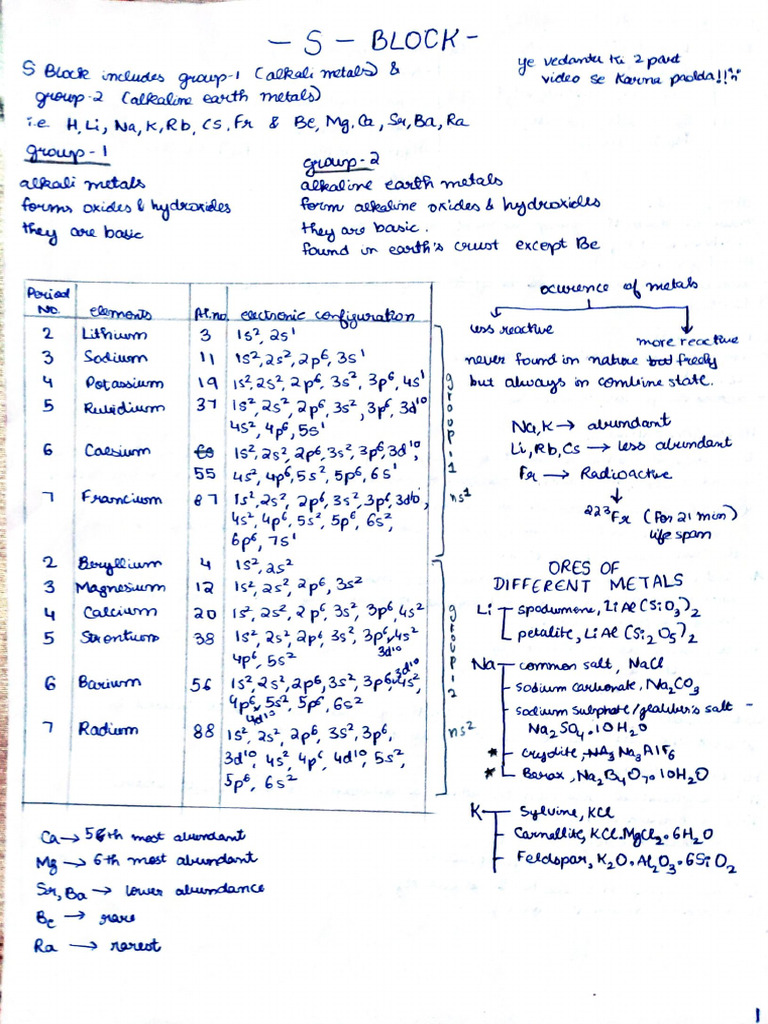 - S - BLOCK -
ye vedantu ki 2 part
video se karna padda!!
S Block includes group-1 (alkali metals) &
group-2 (alkaline earth metals)
i.e H, Li, Na, K, Rb, CS, Fr & Be, Mg, Ca, Sr, Ba, Ra
group-1
alkali metals
forms oxides & hydroxides
they are basic
group-2
alkaline earth metals
form alkaline oxides & hydroxides
they are basic.
found in earth's crust except Be
Period No. elements At.no. electronic configuration
2 Lithium 3 1s², 2s¹
3 Sodium 11 1s², 2s², 2p⁶, 3s¹
4 Potassium 19 1s², 2s², 2p⁶, 3s², 3p⁶, 4s¹
5 Rubidium 37 1s², 2s², 2p⁶, 3s², 3p⁶, 3d¹⁰
4s², 4p⁶, 5s¹
6 Caesium 1s², 2s², 2p⁶, 3s², 3p⁶, 3d¹⁰,
55 4s², 4p⁶, 5s², 5p⁶, 6s¹
7 Francium 87 1s², 2s², 2p⁶, 3s², 3p⁶, 3d¹⁰,
4s², 4p⁶, 5s², 5p⁶, 6s²
6p⁶, 7s¹
group-1
ns¹
2 Beryllium 4 1s², 2s²
3 Magnesium 12 1s², 2s², 2p⁶, 3s²
4 Calcium 20 1s², 2s², 2p⁶, 3s², 3p⁶, 4s²
5 Strontium 38 1s², 2s², 2p⁶, 3s², 3p⁶, 4s²
3d¹⁰
4p⁶, 5s²
6 Barium 56 1s², 2s², 2p⁶, 3s², 3p⁶, 3d¹⁰, 4s²,
4p⁶, 4d¹⁰, 5s², 5p⁶, 6s²
7 Radium 88 1s², 2s², 2p⁶, 3s², 3p⁶,
3d¹⁰, 4s², 4p⁶, 4d¹⁰, 5s²,
5p⁶, 6s²
group-2
ns²
Ca → 5th most abundant
Mg → 6th most abundant
Sr, Ba → lower abundance
Be → rare
Ra → rarest
ocurence of metals
less reactive
more reactive
never found in nature freely
but always in combine state.
Na, K → abundant
Li, Rb, Cs → less abundant
Fr → Radioactive
²²³Fr (for 21 min)
life span
ORES OF
DIFFERENT METALS
Li spodumene, LiAl(SiO₃)₂
petalite, LiAl(Si₂O₅)₂
Na common salt, NaCl
sodium carbonate, Na₂CO₃
sodium sulphate/glauber's salt -
Na₂SO₄.10H₂O
* cryolite, Na₃AlF₆
* Borax, Na₂B₄O₇.10H₂O
K Sylvine, KCl
Carnallite, KCl.MgCl₂.6H₂O
Feldspar, K₂O.Al₂O₃.6SiO₂
1